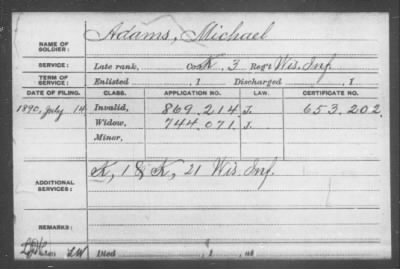 Adams, Michael
NAME OF SOLDIER:
SERVICE: Late rank, Co. K, 3 Reg't Wis. Inf.
TERM OF SERVICE: Enlisted , 1 Discharged , 1
DATE OF FILING. CLASS. APPLICATION NO. LAW. CERTIFICATE NO.
1890, July 14 Invalid, 869.214 J. 653.202.
Widow, 744.071. J.
Minor,
ADDITIONAL SERVICES: K, 1 & K, 21 Wis. Inf.
REMARKS:
Died , 1 , at